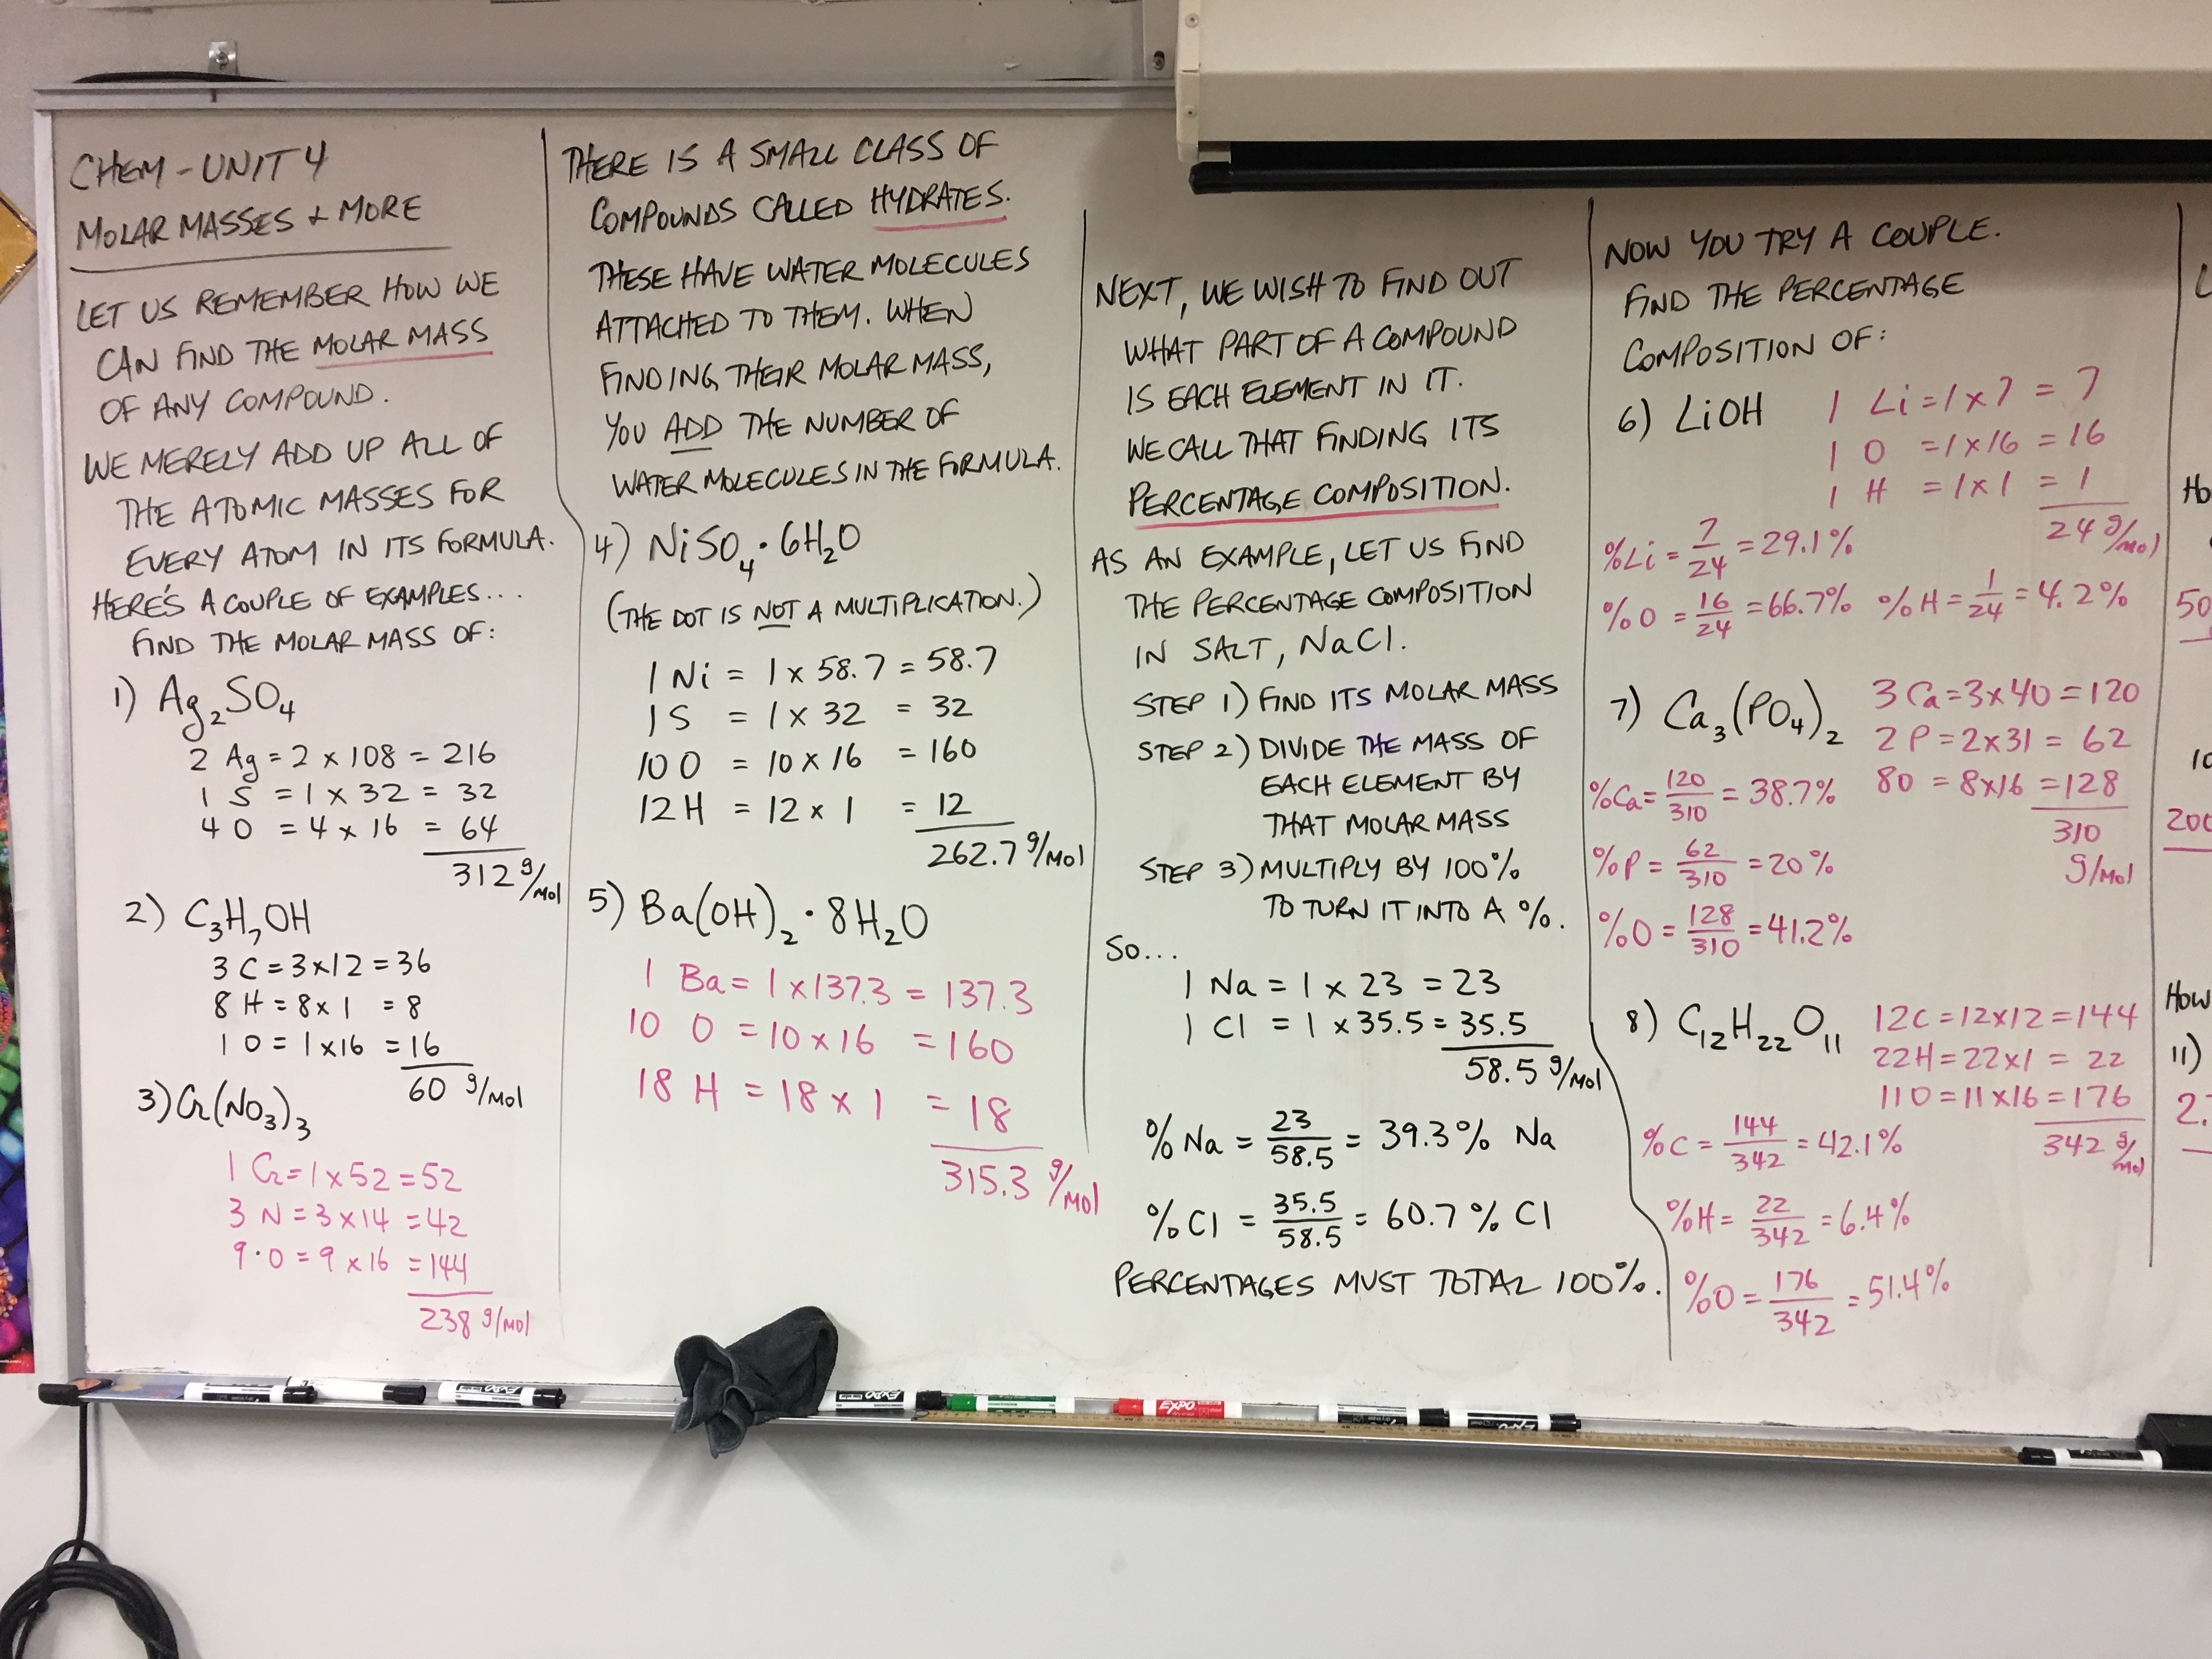 CHEM - UNIT 4
MOLAR MASSES & MORE
LET US REMEMBER HOW WE
CAN FIND THE MOLAR MASS
OF ANY COMPOUND.
WE MERELY ADD UP ALL OF
THE ATOMIC MASSES FOR
EVERY ATOM IN ITS FORMULA.
HERE'S A COUPLE OF EXAMPLES...
FIND THE MOLAR MASS OF:
1) Ag₂SO₄
2 Ag = 2 x 108 = 216
1 S = 1 x 32 = 32
4 O = 4 x 16 = 64
312 g/mol
2) C₃H₇OH
3 C = 3x12 = 36
8 H = 8x1 = 8
1 O = 1x16 = 16
60 g/mol
3) Cr(NO₃)₃
1 Cr = 1 x 52 = 52
3 N = 3 x 14 = 42
9·O = 9 x 16 = 144
238 g/mol
THERE IS A SMALL CLASS OF
COMPOUNDS CALLED HYDRATES.
THESE HAVE WATER MOLECULES
ATTACHED TO THEM. WHEN
FINDING THEIR MOLAR MASS,
YOU ADD THE NUMBER OF
WATER MOLECULES IN THE FORMULA.
4) NiSO₄·6H₂O
(THE DOT IS NOT A MULTIPLICATION.)
1 Ni = 1 x 58.7 = 58.7
1 S = 1 x 32 = 32
10 O = 10 x 16 = 160
12 H = 12 x 1 = 12
262.7 g/mol
5) Ba(OH)₂·8H₂O
1 Ba = 1 x 137.3 = 137.3
10 O = 10 x 16 = 160
18 H = 18 x 1 = 18
315.3 g/mol
NEXT, WE WISH TO FIND OUT
WHAT PART OF A COMPOUND
IS EACH ELEMENT IN IT.
WE CALL THAT FINDING ITS
PERCENTAGE COMPOSITION.
AS AN EXAMPLE, LET US FIND
THE PERCENTAGE COMPOSITION
IN SALT, NaCl.
STEP 1) FIND ITS MOLAR MASS
STEP 2) DIVIDE THE MASS OF
EACH ELEMENT BY
THAT MOLAR MASS
STEP 3) MULTIPLY BY 100%
TO TURN IT INTO A %.
SO...
1 Na = 1 x 23 = 23
1 Cl = 1 x 35.5 = 35.5
58.5 g/mol
% Na = 23/58.5 = 39.3% Na
% Cl = 35.5/58.5 = 60.7% Cl
PERCENTAGES MUST TOTAL 100%.
NOW YOU TRY A COUPLE.
FIND THE PERCENTAGE
COMPOSITION OF:
6) LiOH 1 Li = 1 x 7 = 7
1 O = 1 x 16 = 16
1 H = 1 x 1 = 1
24 g/mol
%Li = 7/24 = 29.1%
%O = 16/24 = 66.7% %H = 1/24 = 4.2%
7) Ca₃(PO₄)₂ 3 Ca = 3x40 = 120
2 P = 2x31 = 62
8O = 8x16 = 128
310
g/mol
%Ca = 120/310 = 38.7%
%P = 62/310 = 20%
%O = 128/310 = 41.2%
8) C₁₂H₂₂O₁₁ 12C = 12x12 = 144
22H = 22x1 = 22
11O = 11x16 = 176
342 g/mol
%C = 144/342 = 42.1%
%H = 22/342 = 6.4%
%O = 176/342 = 51.4%
50
200
How
11)
2.
EXPO